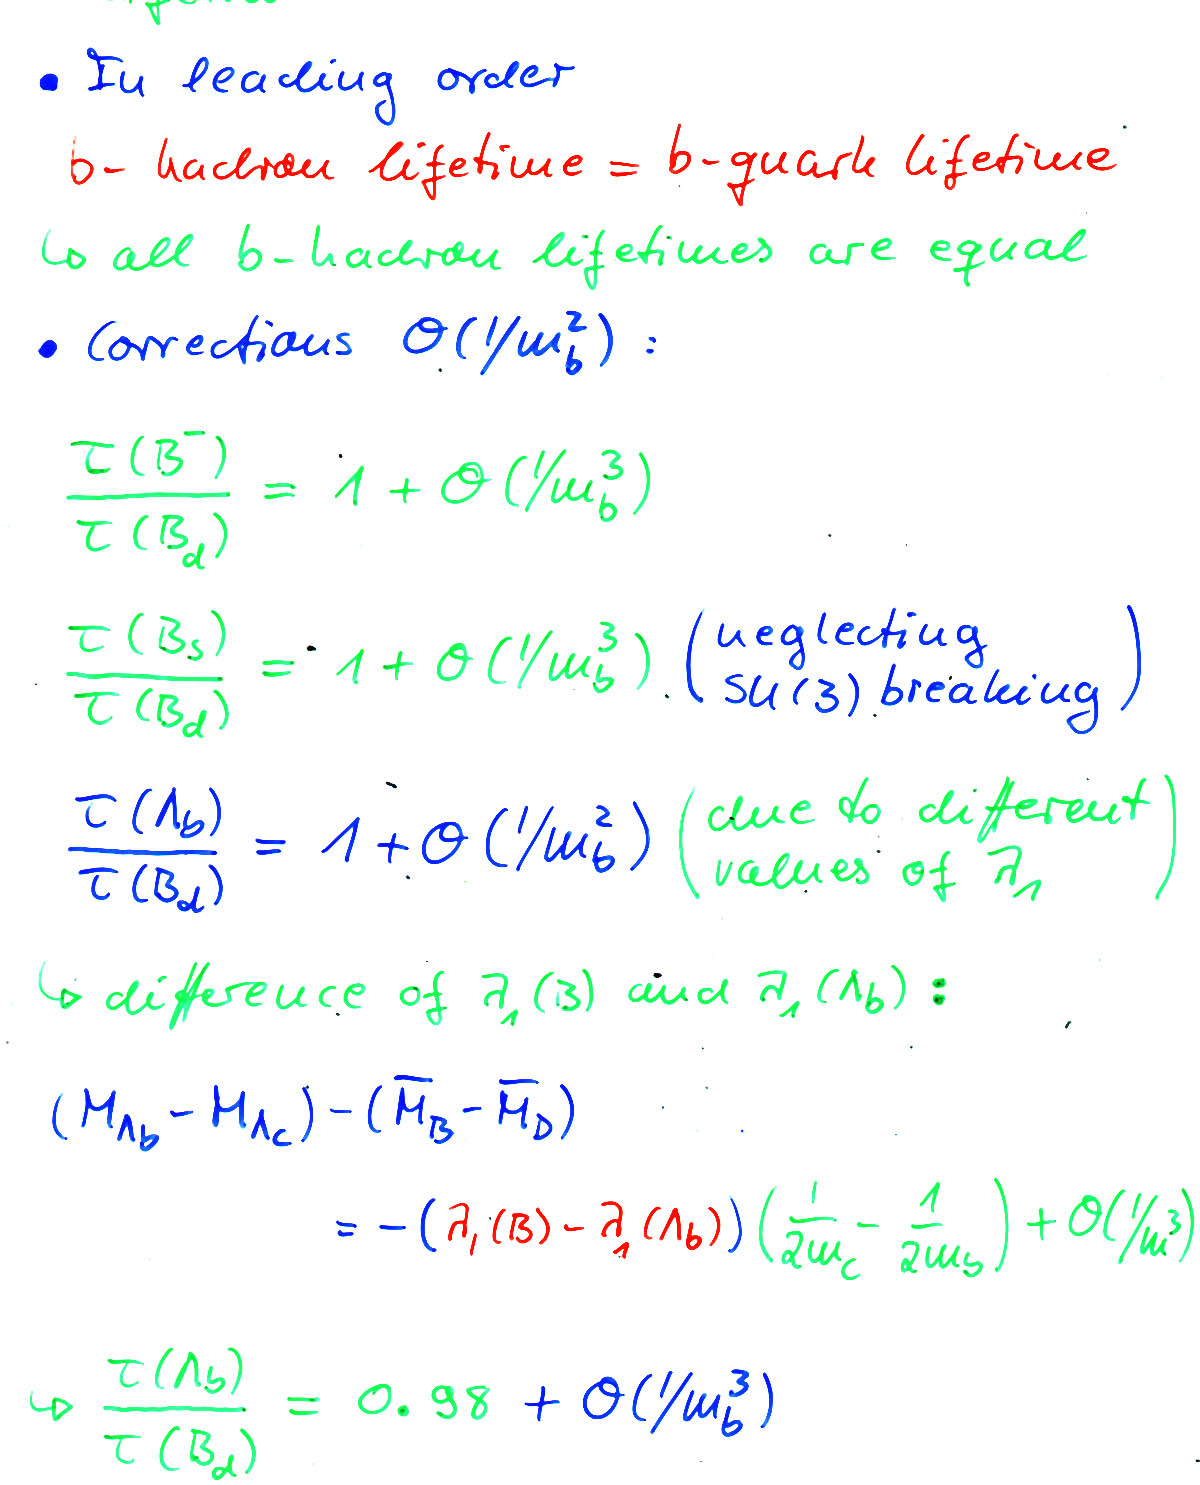 • In leading order
b-hadron lifetime = b-quark lifetime
↳ all b-hadron lifetimes are equal
• Corrections O(1/m_b^2) :
τ(B^-)/τ(B_d) = 1 + O(1/m_b^3)
τ(B_s)/τ(B_d) = 1 + O(1/m_b^3) (neglecting SU(3) breaking)
τ(Λ_b)/τ(B_d) = 1 + O(1/m_b^2) (due to different values of λ_1)
↳ difference of λ_1(B) and λ_1(Λ_b) :
(M_Λb - M_Λc) - (M̄_B - M̄_D)
= -(λ_1(B) - λ_1(Λ_b)) (1/2m_c - 1/2m_b) + O(1/m^3)
↳ τ(Λ_b)/τ(B_d) = 0.98 + O(1/m_b^3)